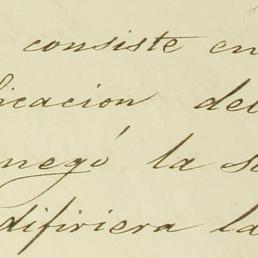 consiste en
icacion del
negó la s
difiriera la